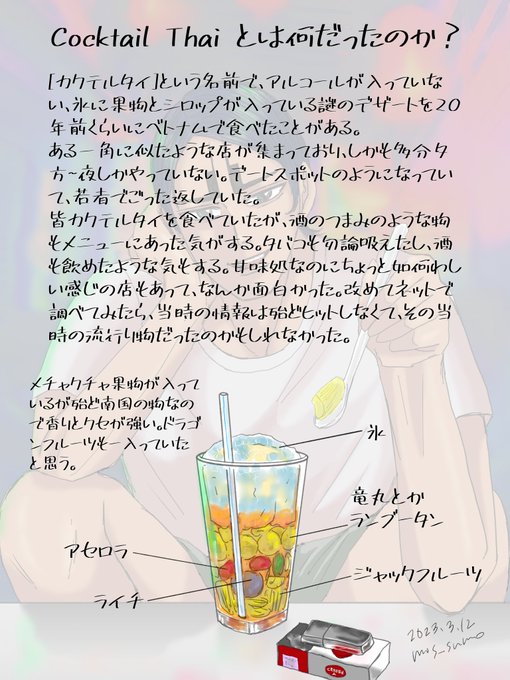 Cocktail Thai とは何だったのか？
「カクテルタイ」という名前で、アルコールが入っていな
い、氷に果物とシロップが入っている謎のデザートを20
年前くらいにベトナムで食べたことがある。
ある一角に似たような店が集まっており、しかも多分夕
方~夜しかやっていない。デートスポットのようになってい
て、若者でごった返していた。
皆カクテルタイを食べていたが、酒のつまみのような物
もメニューにあった気がする。タバコも勿論吸えたし、酒
も飲めたような気もする。甘味処なのにちょっと如何わし
い感じの店もあって、なんか面白かった。改めてネットで
調べてみたら、当時の情報は殆どヒットしなくて、その当
時の流行り物だったのかもしれなかった。
メチャクチャ果物が入って
いるが殆ど南国の物なの
で香りとクセが強い。ドラゴ
ンフルーツも一入っていた
と思う。
氷
竜丸とか
ランブータン
アセロラ
ライチ
ジャックフルーツ
2023.3.12
mos_sumo